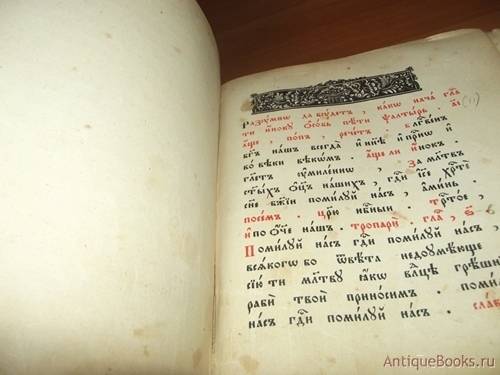 Разумно да будетъ, како нача гла
ти иноку особь пѣти ѱалтырь. аще
аще, попъ, речетъ. Блгвенъ
бгъ нашъ всегда и нн҃ѣ и прно и
во вѣки вѣкомъ. аще ли инокъ.
глетъ ѹмиленно, За мл҃твъ
ст҃ыхъ оц҃ъ нашихъ, гд҃и іс҃е хрт҃е
сн҃е бж҃іи помилуй насъ, аминь,
посемъ. цр҃ю нб҃ный. трт҃ое,
и по оч҃е нашъ. тропари, гла,
Помилуй насъ гд҃и помилуй насъ,
всякогѡ бо ѿвѣта недоумѣюще
сію ти мл҃тву ꙗкѡ влⷣцѣ грѣшни
раби твои приносимъ. помилуй
насъ гд҃и помилуй насъ. слав
AntiqueBooks.ru